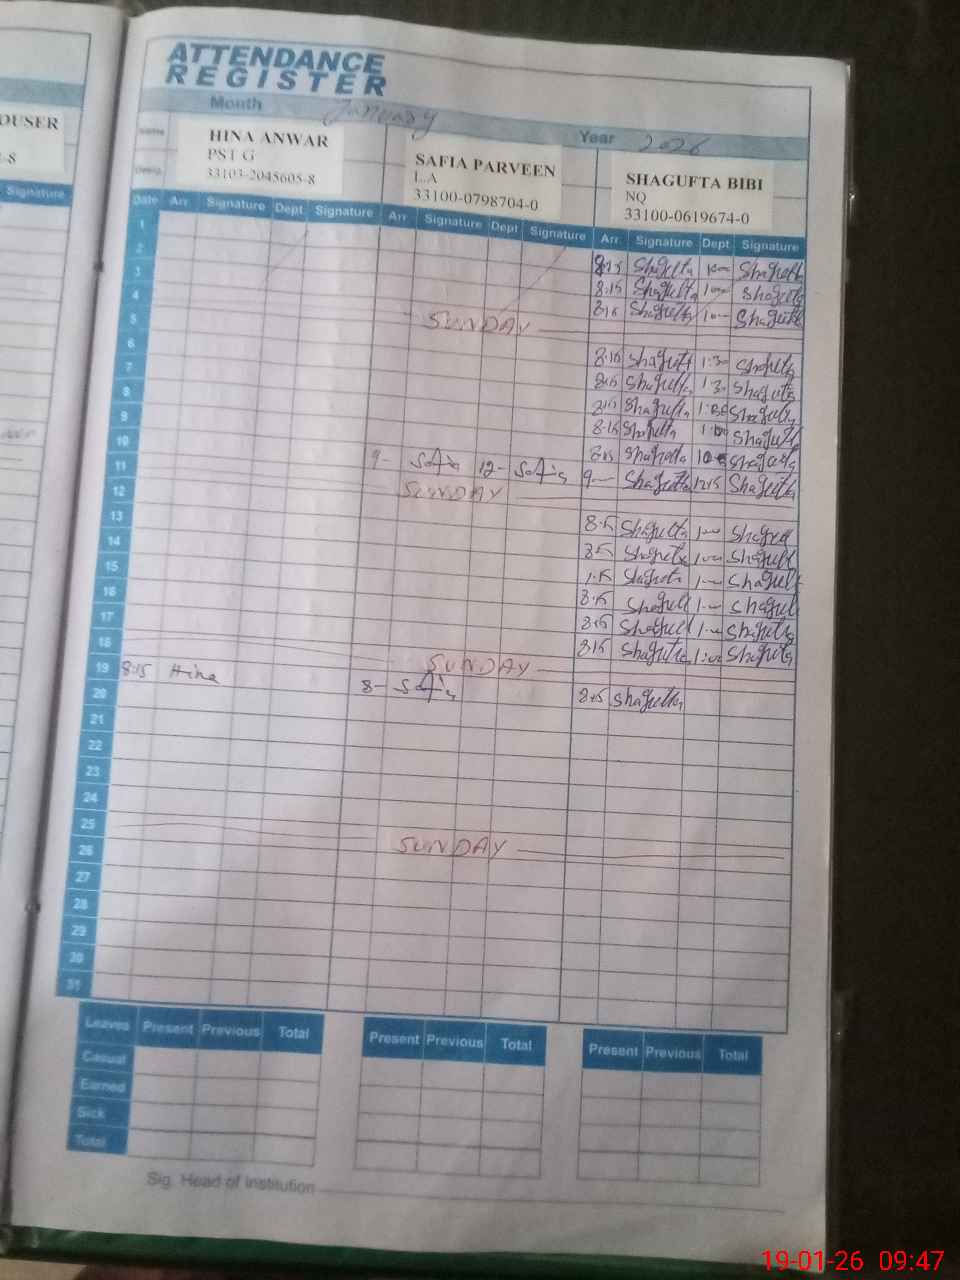 OUSER
-8
Signature
ATTENDANCE
REGISTER
Month January Year 2026
Name HINA ANWAR SAFIA PARVEEN SHAGUFTA BIBI
Desig. PST G L.A NQ
33103-2045605-8 33100-0798704-0 33100-0619674-0
Date Arr. Signature Dept Signature Arr. Signature Dept Signature Arr. Signature Dept. Signature
1
2 8:15 Shagufta Shagufta
3 8:15 Shagufta Shagufta
4 8:15 Shagufta Shagufta
5 SUNDAY
6
7 8:15 Shagufta 1:30 Shagufta
8 8:15 Shagufta Shagufta
9 8:15 Shagufta Shagufta
10 8:15 Shagufta Shagufta
11 9- Safia 12- Safia 9- Shagufta 12:15 Shagufta
12 SUNDAY
13 8:15 Shagufta 1- Shagufta
14 8:15 Shagufta 1:00 Shagufta
15 Shagufta 1- Shagufta
16 8:15 Shagufta 1- Shagufta
17 8:15 Shagufta Shagufta
18 8:15 Shagufta 1:00 Shagufta
SUNDAY
19 8:15 Hina
20 8- Safia 8:15 Shagufta
21
22
23
24
25
26 SUNDAY
27
28
29
30
31
Leaves Present Previous Total Present Previous Total Present Previous Total
Casual
Earned
Sick
Total
Sig. Head of Institution
19-01-26 09:47